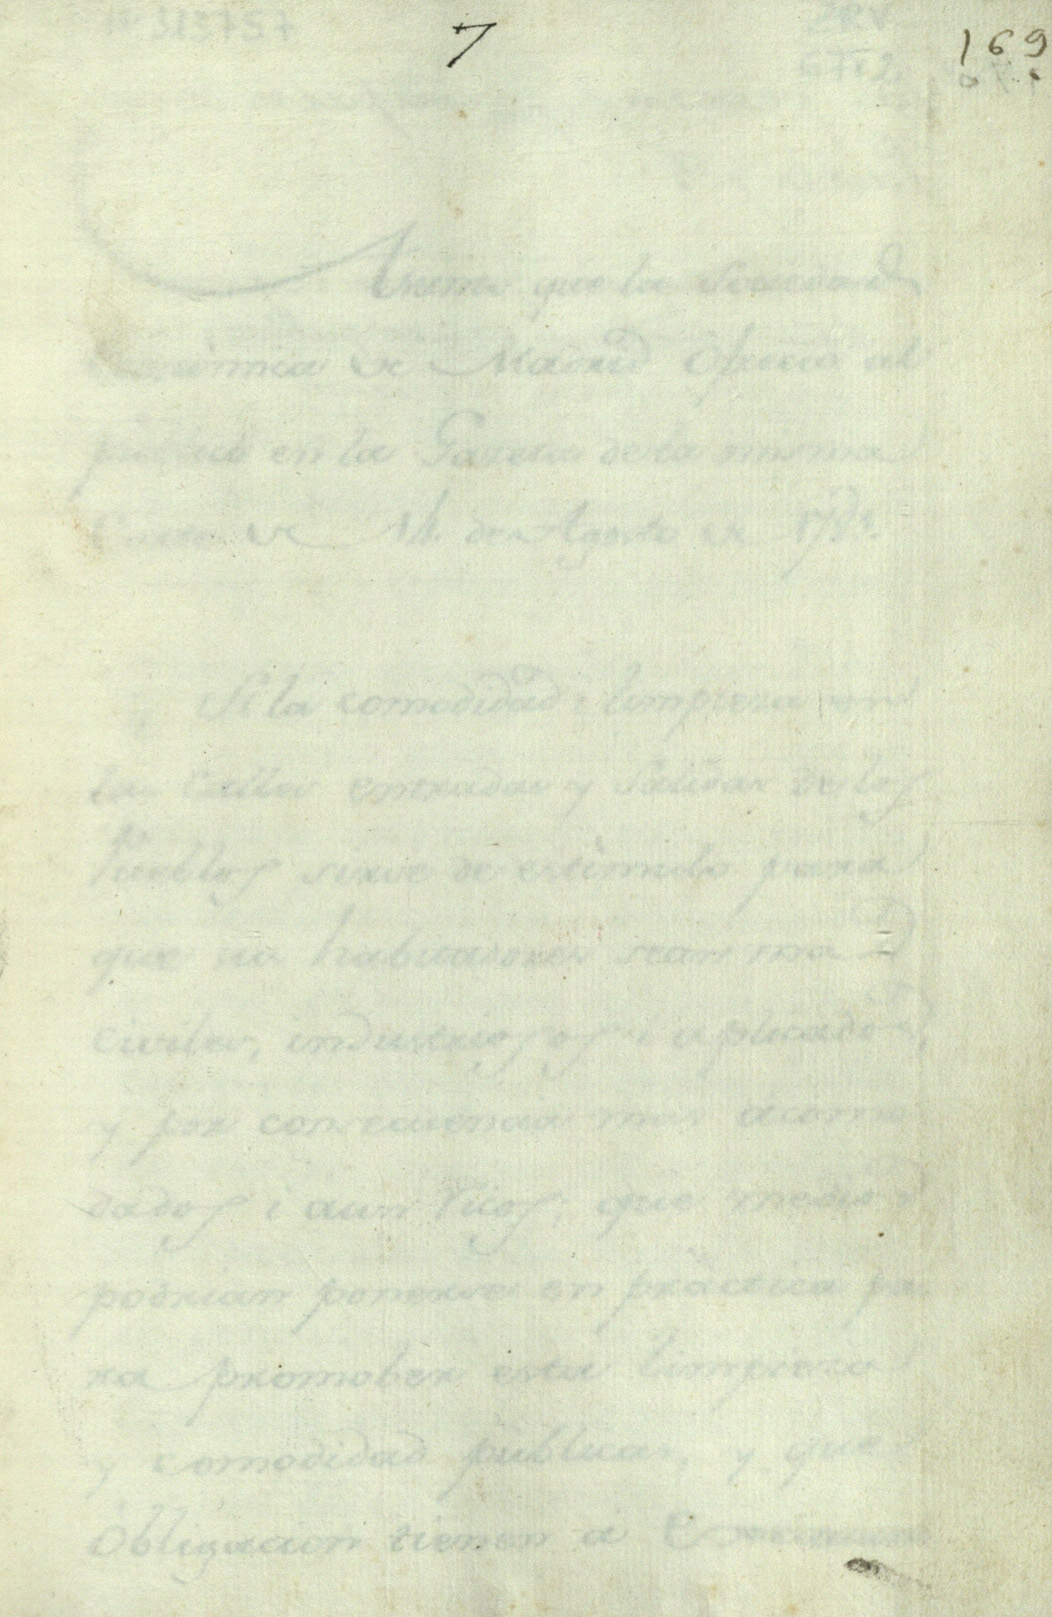 7
169
Asunto que la Sociedad
Económica de Madrid ofreció al
público en la Gazeta de la misma
de 14 de Agosto de
Si la comodidad i limpieza en
las Calles entradas y Salidas de los
Pueblos sirve de estimulo para
que sus habitadores sean mas
Civiles, industriosos i aplicados,
y por consecuencia mas acomo
dados i aun Ricos; que medios
podrian ponerse en práctica pa
ra promober esta limpieza
y comodidad publicas, y que
Obligacion tienen á